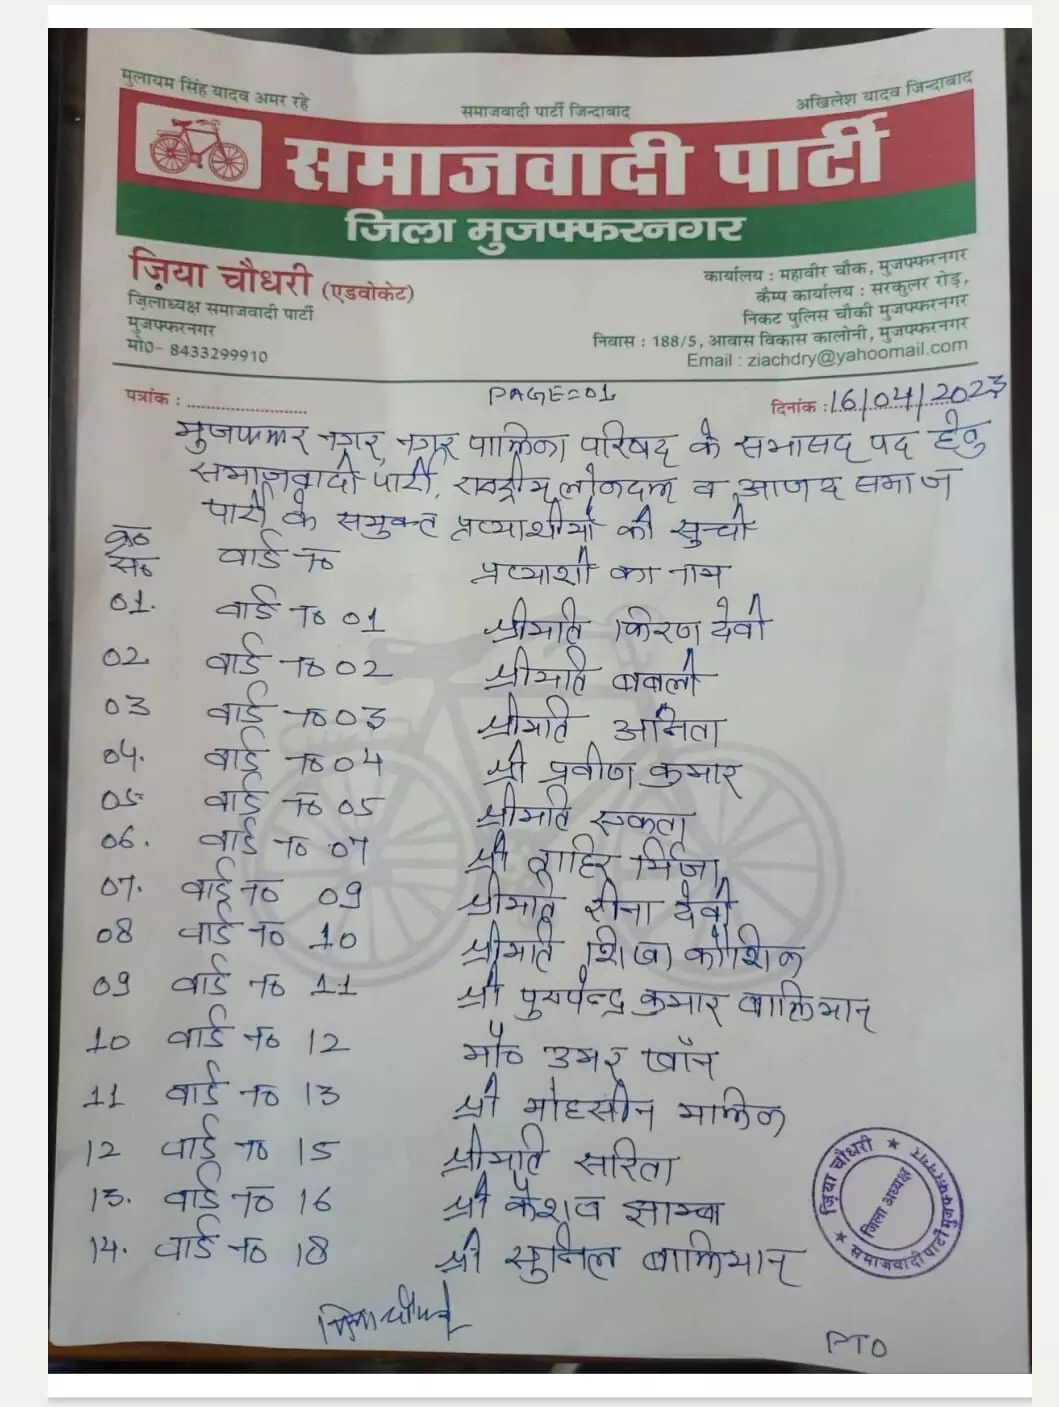 मुलायम सिंह यादव अमर रहे
समाजवादी पार्टी जिन्दाबाद
अखिलेश यादव जिन्दाबाद
समाजवादी पार्टी
जिला मुजफ्फरनगर
ज़िया चौधरी (एडवोकेट)
ज़िलाध्यक्ष समाजवादी पार्टी
मुजफ्फरनगर
मो0- 8433299910
कार्यालय : महावीर चौक, मुजफ्फरनगर
कैम्प कार्यालय : सरकुलर रोड़,
निकट पुलिस चौकी मुजफ्फरनगर
निवास : 188/5, आवास विकास कालोनी, मुजफ्फरनगर
Email : ziachdry@yahoomail.com
पत्रांक : ..............................
PAGE=01
दिनांक : 16/04/2023
मुजफ्फर नगर, नगर पालिका परिषद के सभासद पद हेतु
समाजवादी पार्टी, राष्ट्रीय लोकदल व आजाद समाज
पार्टी के सयुक्त प्रत्याशीयों की सुची
क्र० स० वार्ड न० प्रत्याशी का नाम
01. वार्ड न० 01 श्रीमति किरण देवी
02 वार्ड न० 02 श्रीमति बबली
03 वार्ड न० 03 श्रीमति अनिता
04. वार्ड न० 04 श्री प्रवीण कुमार
05 वार्ड न० 05 श्रीमति एकता
06. वार्ड न० 07 श्री ताहिर मिर्जा
07. वार्ड न० 09 श्रीमति रीना देवी
08 वार्ड न० 10 श्रीमति शिखा कौशिक
09 वार्ड न० 11 श्री पुष्पेन्द्र कुमार बालियान
10 वार्ड न० 12 मौ० उमर खॉन
11 वार्ड न० 13 श्री मोहसीन मलिक
12 वार्ड न० 15 श्रीमति सरिता
13. वार्ड न० 16 श्री केशव झाम्बा
14. वार्ड न० 18 श्री सुनिल बालियान
ज़िया चौधरी ★ मुजफ्फरनगर
जिला अध्यक्ष
★ समाजवादी पार्टी
PTO